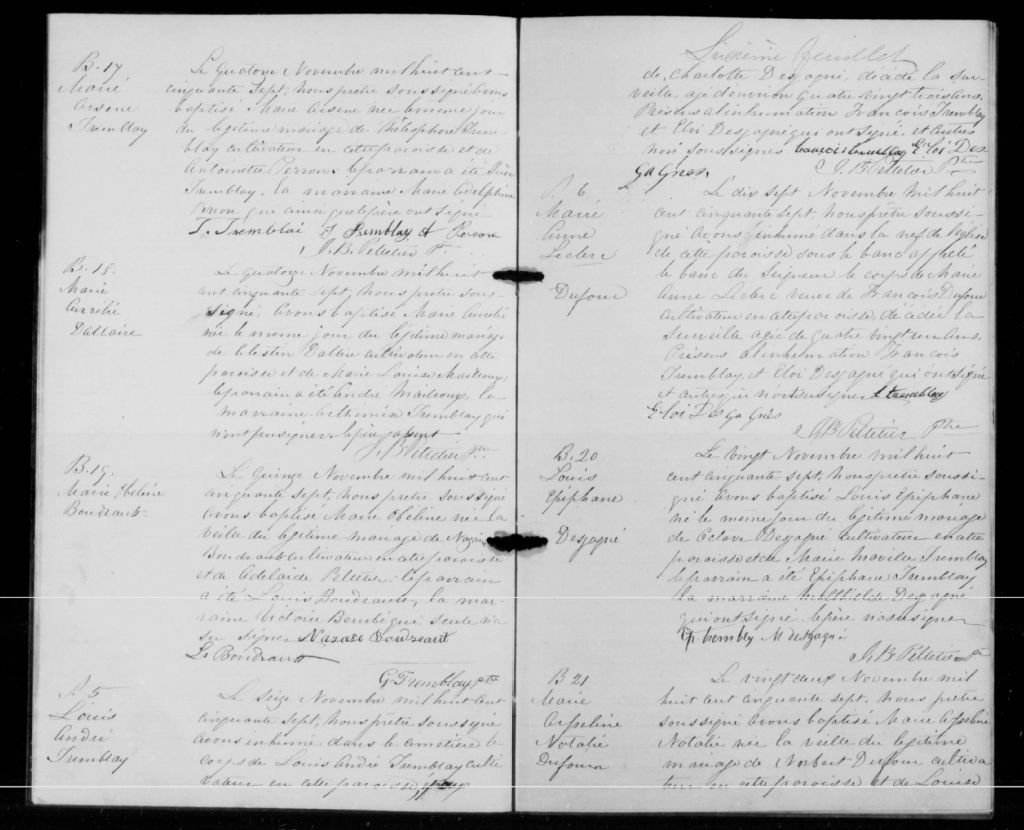 B. 17
Marie
Arsene
Tremblay
Le Quatorze Novembre mil huit cent
cinquante sept, nous prêtre soussigné avons
baptisé Marie Arsene née le même jour
du légitime mariage de Thélesphore Trem-
blay cultivateur en cette paroisse et de
Antoinette Perron. Le parain a été
Tremblay, la marraine Marie Adelphine
qui ainsi que le père ont signé
T. Tremblai J Tremblay A Perron
J. B. Pelletier Ptre
B. 18.
Marie
Aurélie
Dallaire
Le Quatorze Novembre mil huit
cent cinquante sept, nous prêtre sous-
signé, avons baptisé Marie Aurélie
née le même jour du légitime mariage
de Célestin Dallaire cultivateur en cette
paroisse et de Marie Louise Mailloux;
le parrain a été André Mailloux, la
marraine Arthémise Tremblay qui
n'ont pu signer. le père absent
J. B. Pelletier Ptre
B. 19.
Marie Obeline
Boudreault.
Le Quinze Novembre mil huit cent
cinquante sept, nous prêtre soussigné
avons baptisé Marie Obeline née la
veille du légitime mariage de Nazaire
Boudreault cultivateur en cette paroisse
et de Adelaide Pelletier. Le parrain
a été Louis Boudreault, la mar-
raine Victoire qui seule n'a
su signer Nazare Boudreault
Ls Boudreault
G. Tremblay ptre
S. 5
Louis
André
Tremblay
Le seize Novembre mil huit cent
cinquante sept, nous prêtre soussigné
avons inhumé dans le cimetière le
corps de Louis André Tremblay culti-
vateur en cette paroisse, époux
Sixième feuillet
de Charlotte Desgagné, décédé la sur-
veille, agé d'environ quatre vingt trois ans.
Présens à l'inhumation François Tremblay
et Eloi Desgagné qui ont signé, et autres
non soussignés francois tremblay Eloi Des
Gagnes.
J. B. Pelletier Ptre
S. 6
Marie
Anne
Leclerc
Dufour
Le dix sept Novembre mil huit
cent cinquante sept, nous prêtre soussi-
gné avons inhumé dans la nef de l'église
de cette paroisse sous le banc appelé
le banc du Seigneur le corps de Marie
Anne Leclerc veuve de François Dufour
cultivateur en cette paroisse, décédée la
surveille agée de quatre vingt un ans.
Présens à l'inhumation François
Tremblay, et Eloi Desgagné qui ont signé
et autres qui n'ont su signer f tremblay
Eloi Des Ga Gnés
J B Pelletier Ptre
B. 20
Louis
Epiphane
Desgagné
Le Vingt Novembre mil huit
cent cinquante sept, nous prêtre soussi-
gné avons baptisé Louis Epiphane
né le même jour du légitime mariage
de Octave Desgagné cultivateur en cette
paroisse et de Marie Modiste Tremblay
le parrain a été Epiphane Tremblay
la marraine Mathilde Desgagné
qui ont signé, le père n'a su signer
Ep trembly M desgagné
J. B. Pelletier Ptre
B 21
Marie
Asseline
Natalie
Dufour
Le vingt deux Novembre mil
huit cent cinquante sept, nous prêtre
soussigné avons baptisé Marie Asseline
Natalie née la veille du légitime
mariage de Norbert Dufour cultiva
teur en cette paroisse et de Louise